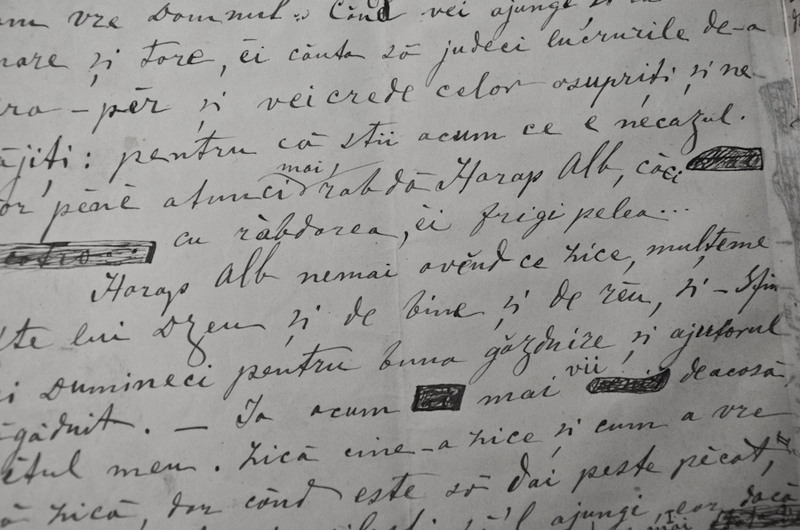 vre Domnul. Când vei ajunge
mare și tare, ĕi căuta să judeci lucrurile de-a
-păr și vei crede celor asupriți și ne-
ăjiți: pentru că știi acum ce e necazul.
pĕnĕ atunci mai rabdă Harap Alb, căci
cu răbdarea, ĕi frigi pelea...
Harap Alb nemai avĕnd ce zice, mulțeme
lui Dzeu și de bine și de rĕu, și - Sfin
Dumineci pentru buna găzduire și ajutorul
ăgăduit. — Ia acum mai vii deacasă,
meu. Zică cine-a zice și cum a vre
zică, dar când este să dai peste pĕcat,
ajungi, iar dacă